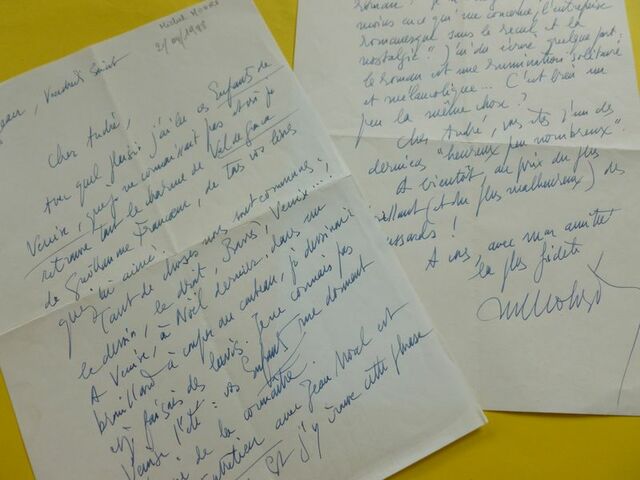 Michel MOHRT
21/04/1988
Vendredi Saint
Cher André,
Avec quel plaisir j'ai lu ces Enfants de
Venise, que je ne connaissais pas et où je
retrouve tout le charme de Val de Grâce
de Guillaume Francœur, de tous vos livres
que j'ai aimés.
Tant de choses nous sont communes :
le dessin, le droit, Paris, Venise...
A Venise, à Noël dernier, dans un
brouillard à couper au couteau, je dessinais
et faisais des lavis. Je ne connais pas
Venise l'été : vos Enfants me donnent
de la connaître.
entretien avec Jean Noël est
Et j'y trouve cette phrase
roman
moins en ce qui me concerne, l'entreprise
romanesque sans le recul et la
nostalgie") J'ai dû écrire quelque part :
le roman est une rumination solitaire
et mélancolique... C'est bien un
peu la même chose ?
Cher André, vous êtes l'un des
derniers "heureux peu nombreux".
A bientôt, au prix du plus
brillant (et du plus malheureux) des
hussards !
A vous, avec mon amitié
la plus fidèle